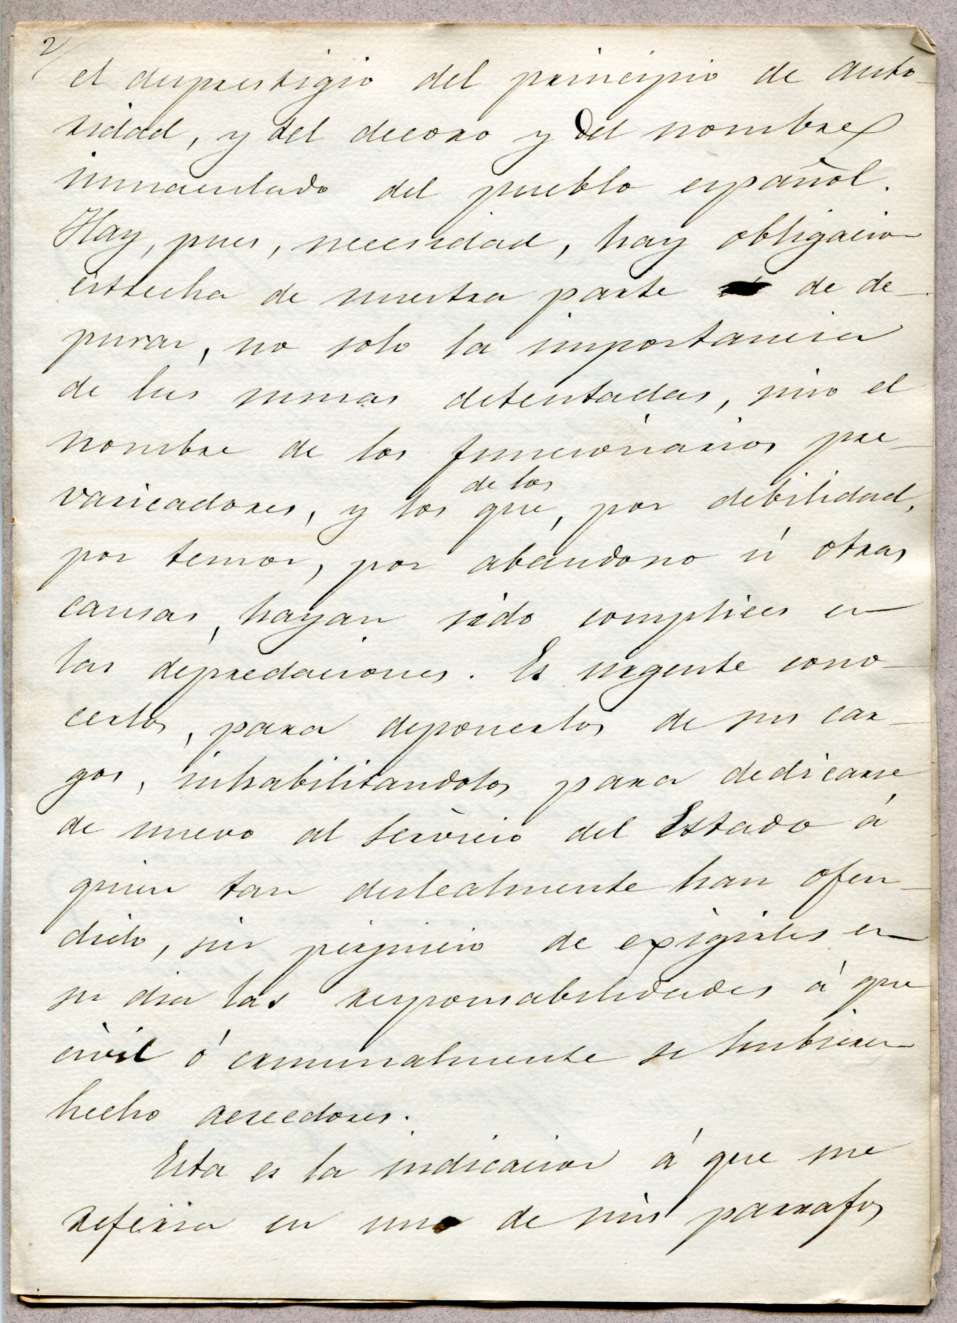 2
el desprestigio del principio de auto
ridad, y del decoro y del nombre
inmaculado del pueblo español.
Hay, pues, necesidad, hay obligacion
estrecha de nuestra parte de de-
purar, no solo la importancia
de las sumas detentadas, sino el
nombre de los funcionarios pre-
varicadores, y los que, por debilidad,
de los
por temor, por abandono ú otras
causas, hayan sido complices en
las depredaciones. Es urgente cono-
cerlos, para deponerlos de sus car-
gos, inhabilitandolos para dedicarse
de nuevo al servicio del Estado á
quien tan deslealmente han ofen-
dido, sin perjuicio de exigirles en
su dia las responsabilidades á que
civil ó criminalmente se hubieren
hecho acreedores.
Esta es la indicacion á que me
referia en uno de mis parrafos